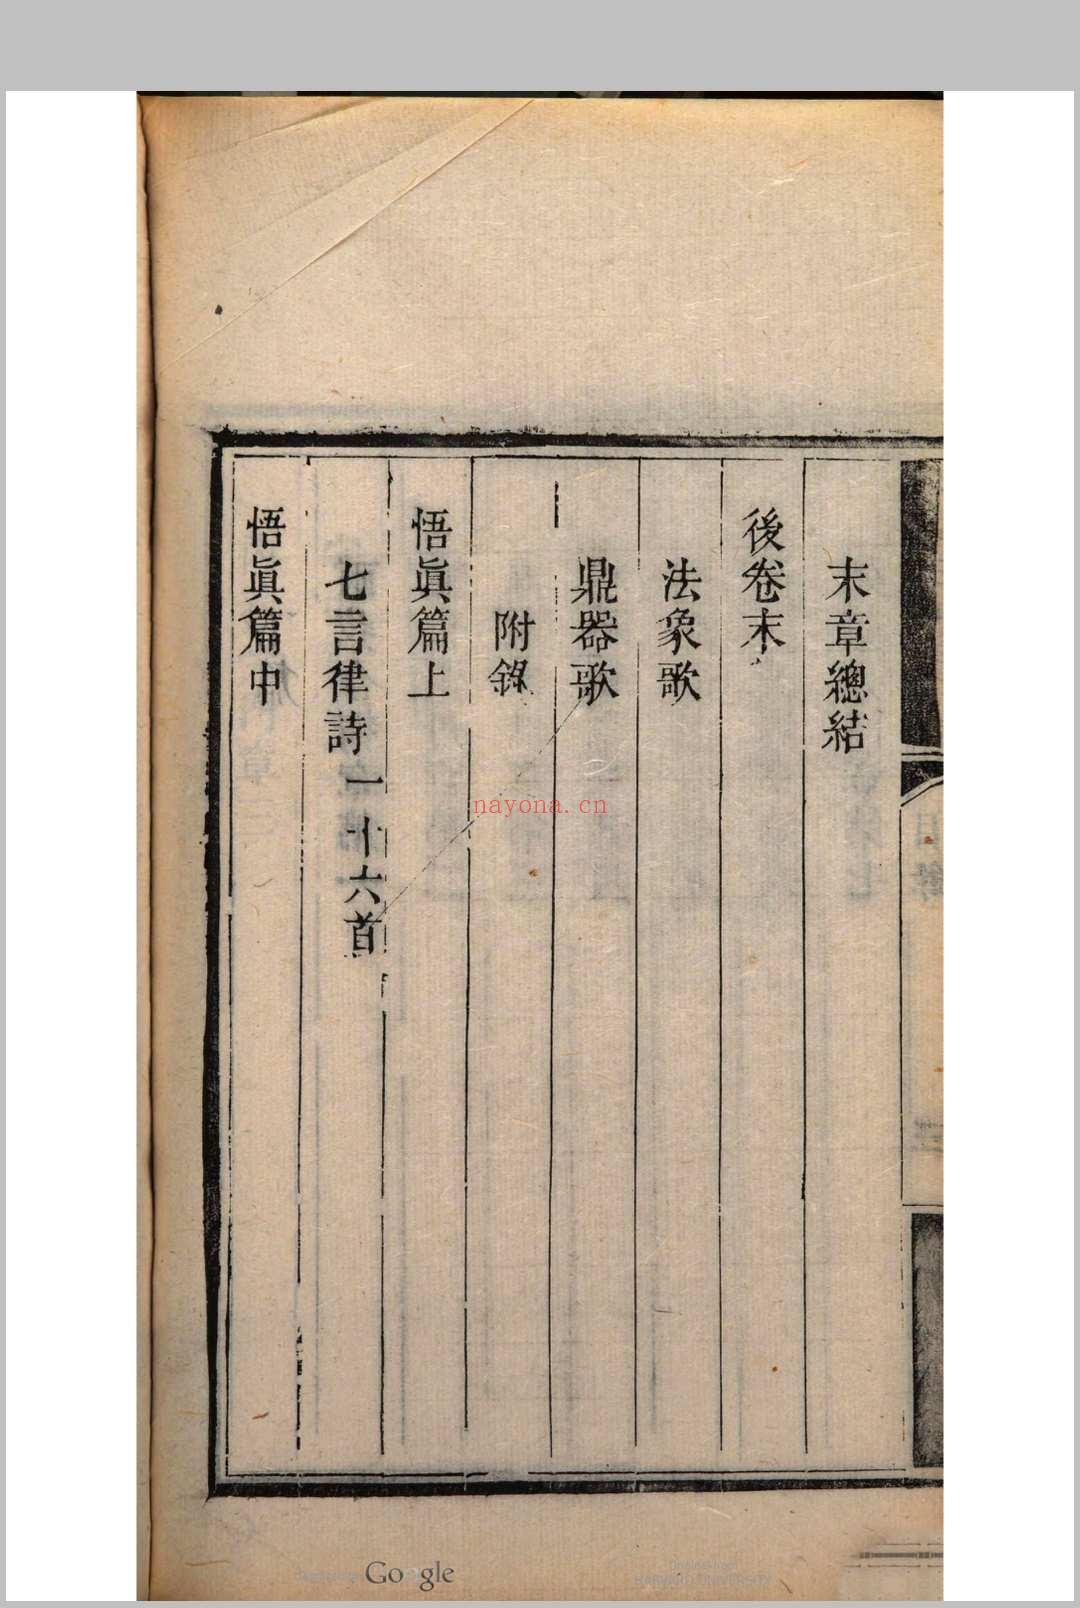 末章總結
後卷末
法象歌
鼎器歌
附錄
悟眞篇上
七言律詩一十六首
悟眞篇中
nayona.cn
Google